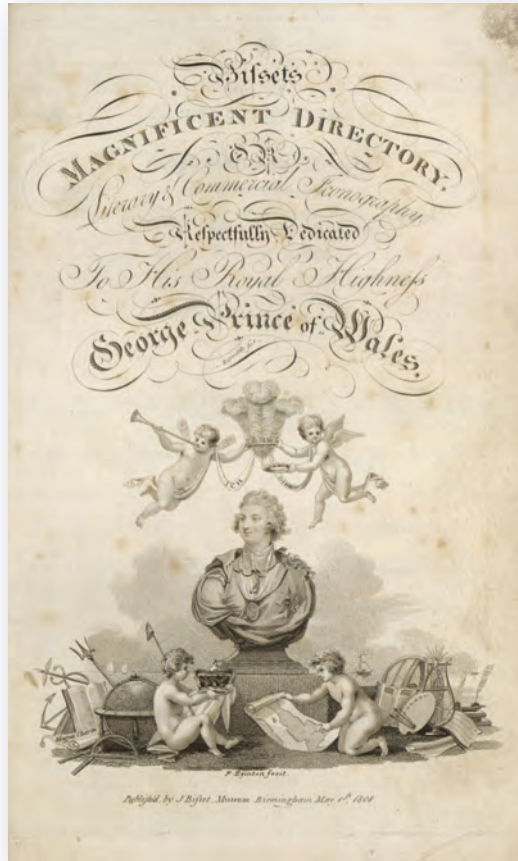 Bissets
MAGNIFICENT DIRECTORY.
OR
Literary & Commercial Iconography,
Respectfully Dedicated
To His Royal Highness
George Prince of Wales.
ICH
Magna Charta
F. Eginton fecit.
Publish'd by J Bisset, Museum Birmingham May 1st 1800